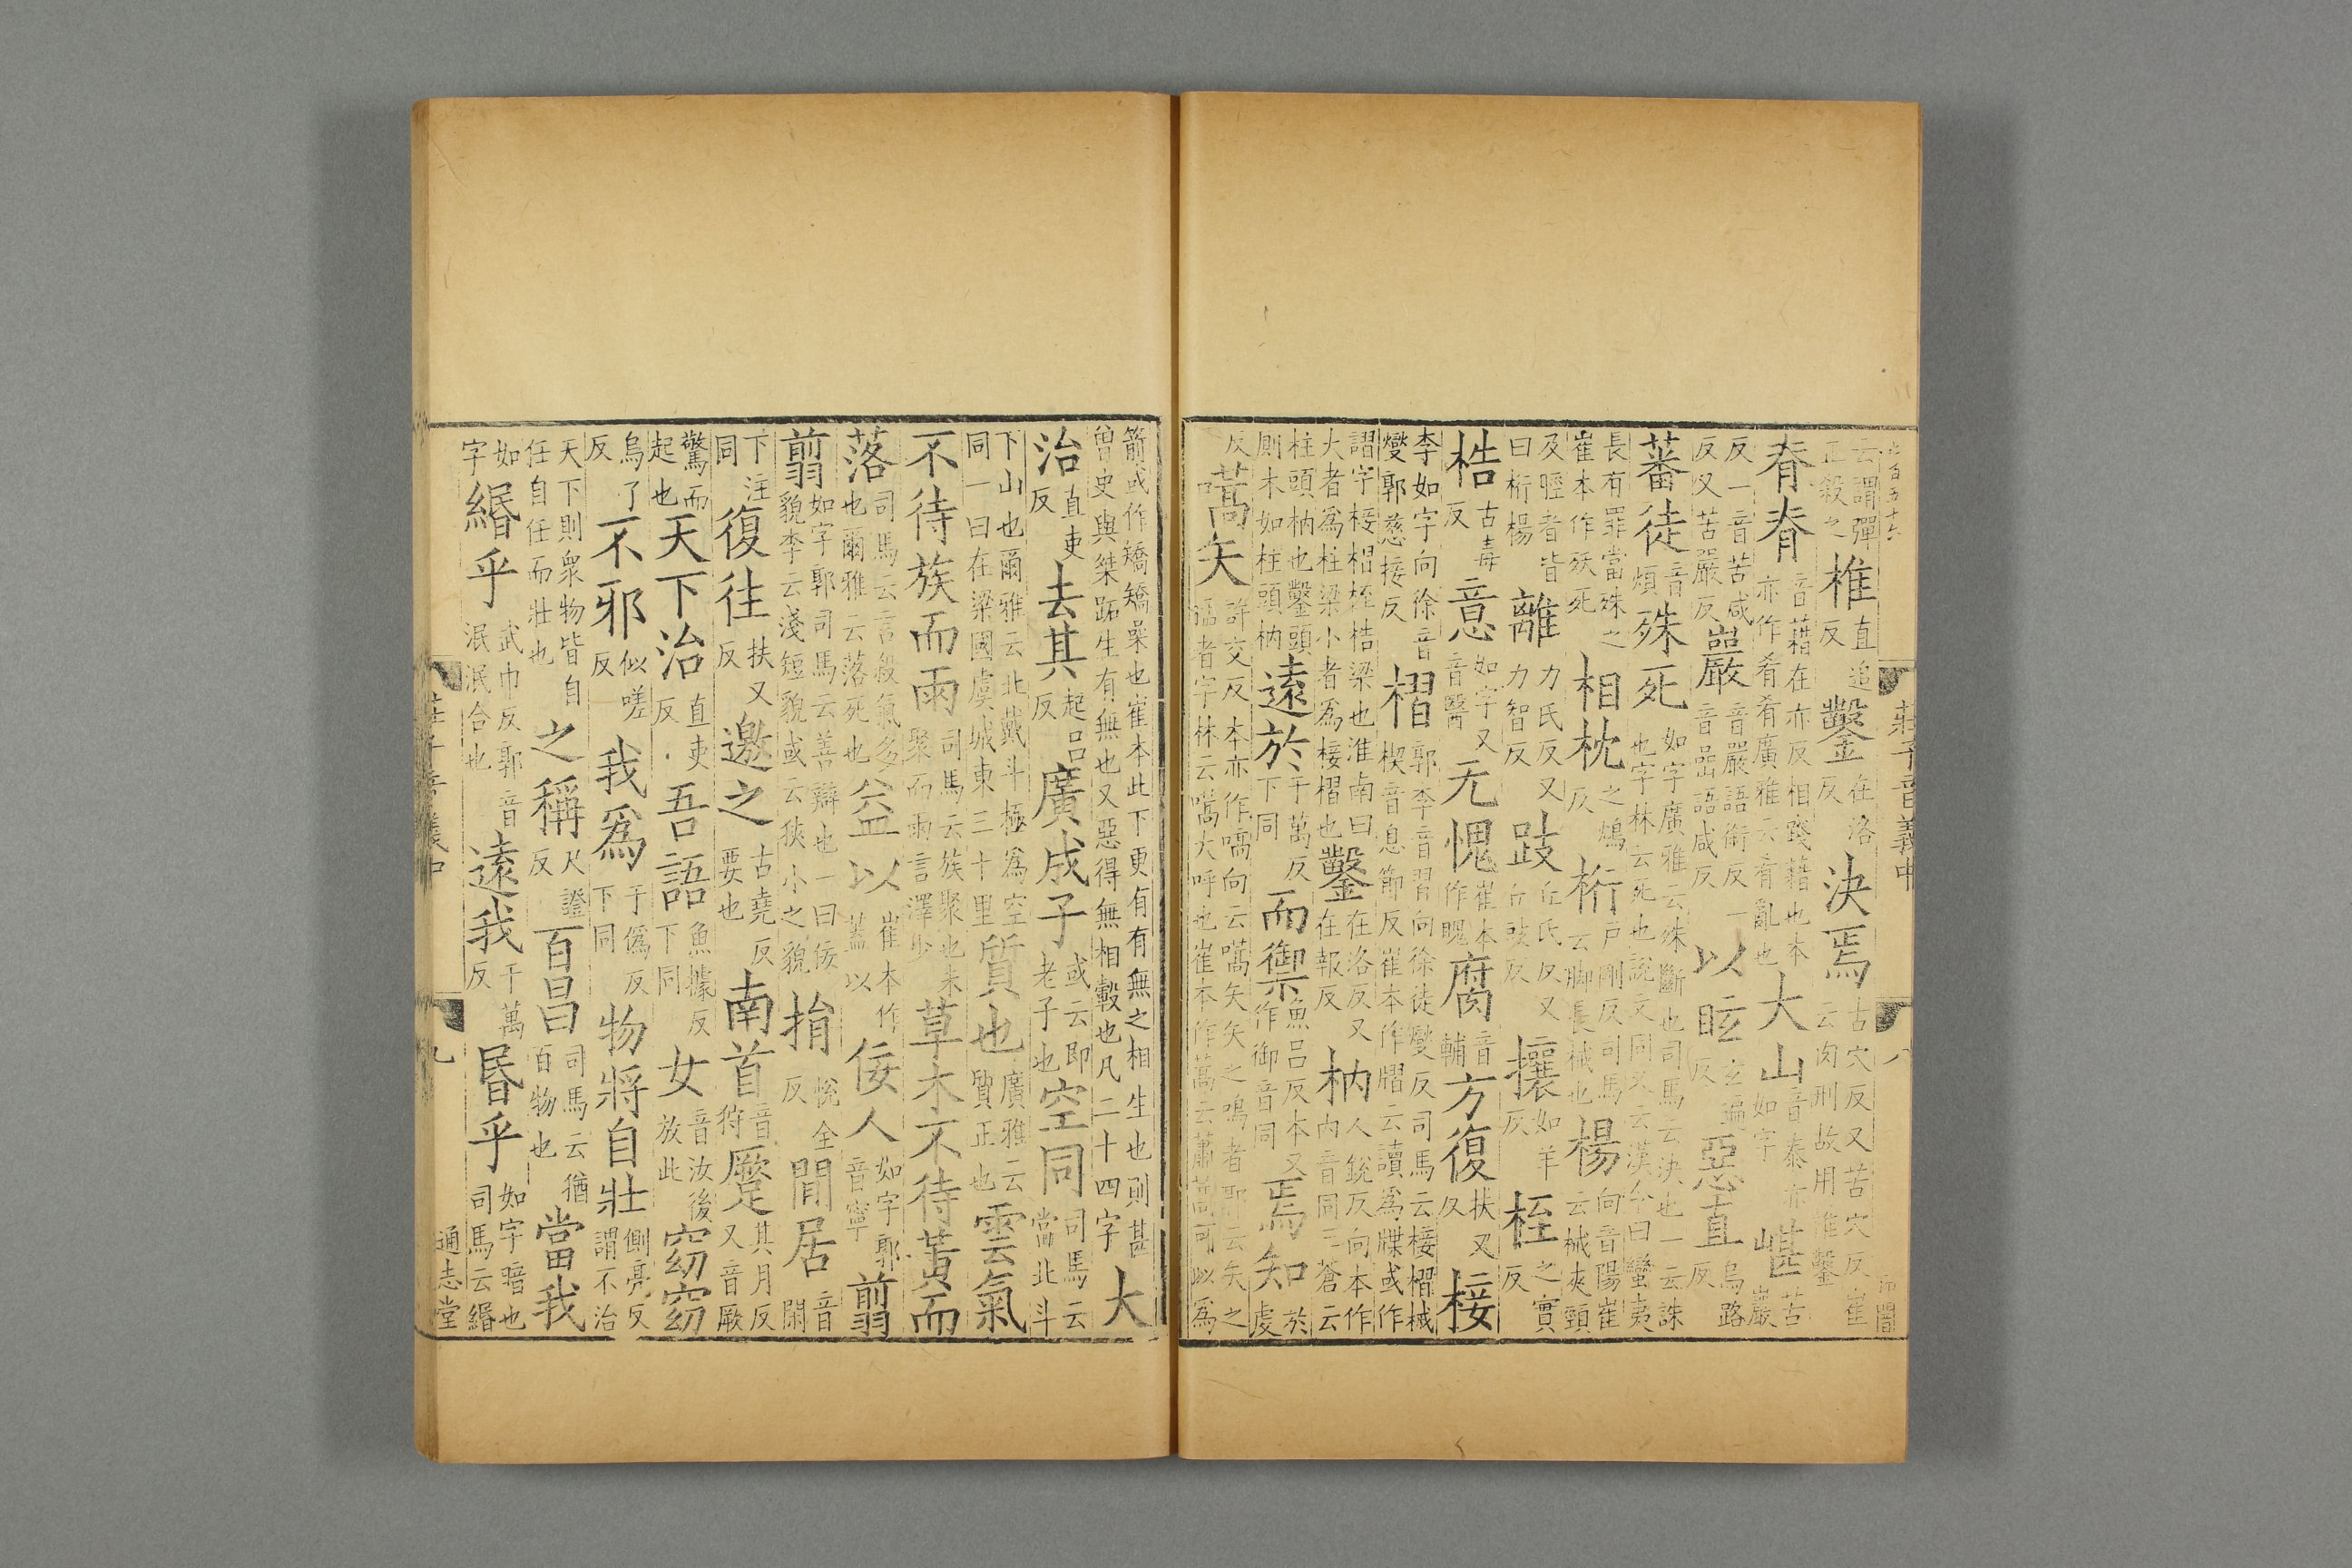 六百五十六
莊子音義中
八
云謂彈正殺之椎直追反鑿在洛反決焉古穴反又苦穴反崔云肉刑故用椎鑿
脊脊音藉在亦反相踐藉也本亦作肴肴廣雅云肴亂也大山音泰亦如字嵁苦巖
反一音苦咸反又苦嚴反巖音嚴語銜反一音喦語咸反以眩玄遍反惡直烏路反
蕃徒音煩殊死如字廣雅云殊斷也司馬云決也一云誅也字林云死也說文同又云漢令曰蠻夷
長有罪當殊之崔本作殀死相枕之鴆反桁戶剛反司馬云腳長械也楊向音陽崔云械夾頸
及脛者皆曰桁楊離力氏反又力智反跂丘氏反又丘豉反攘如羊反桎之實反
梏古毒反意如字又音醫无愧崔本作聭腐音輔方復扶又反椄
李如字向徐音燮郭慈接反槢郭李音習向徐徒燮反司馬云椄槢械楔音息節反崔本作熠云讀爲牒或作
謂字椄槢桎梏梁也淮南曰大者爲柱梁小者爲椄槢也鑿在洛反又在報反枘人銳反向本作内音同三蒼云
柱頭枘也鑿頭厠木如柱頭枘遠於于萬反下同而御魚呂反本又作御音同焉知於虔
反嚆矢許交反本亦作嗃向云嚆矢矢之鳴者郭云矢之猛者字林云嚆大呼也崔本作蒿云蕭蒿可以爲
箭或作矯矯喿也崔本此下更有有無之相生也則甚曾史與桀跖生有無也又惡得無相轂也凡二十四字大
治直吏反去其起呂反廣成子或云即老子也空同司馬云當北斗
下山也爾雅云北戴斗極爲空同一曰在梁國虞城東三十里質也廣雅云質正也雲氣
不待族而雨司馬云族聚也未聚而雨言澤少草木不待黃而
落司馬云言殺氣多也爾雅云落死也益以崔本作蓋以佞人如字郭音寧翦
翦如字郭司馬云善辯也一曰佞貌李云淺短貌或云狹小之貌捐悅全反閒居音閑
下注同復往扶又反邀之古堯反要也南首音狩蹷其月反又音厥
驚而起也天下治直吏反吾語魚據反下同女音汝後放此窈窈
烏了反不邪似嗟反我爲于僞反下同物將自壯側亮反謂不治
天下則衆物皆自任自任而壯也之稱尺證反百昌司馬云猶百物也當我
如字緡乎武巾反郭音泯泯合也遠我于萬反昬乎如字暗也司馬云緡
莊子音義中
九
通志堂